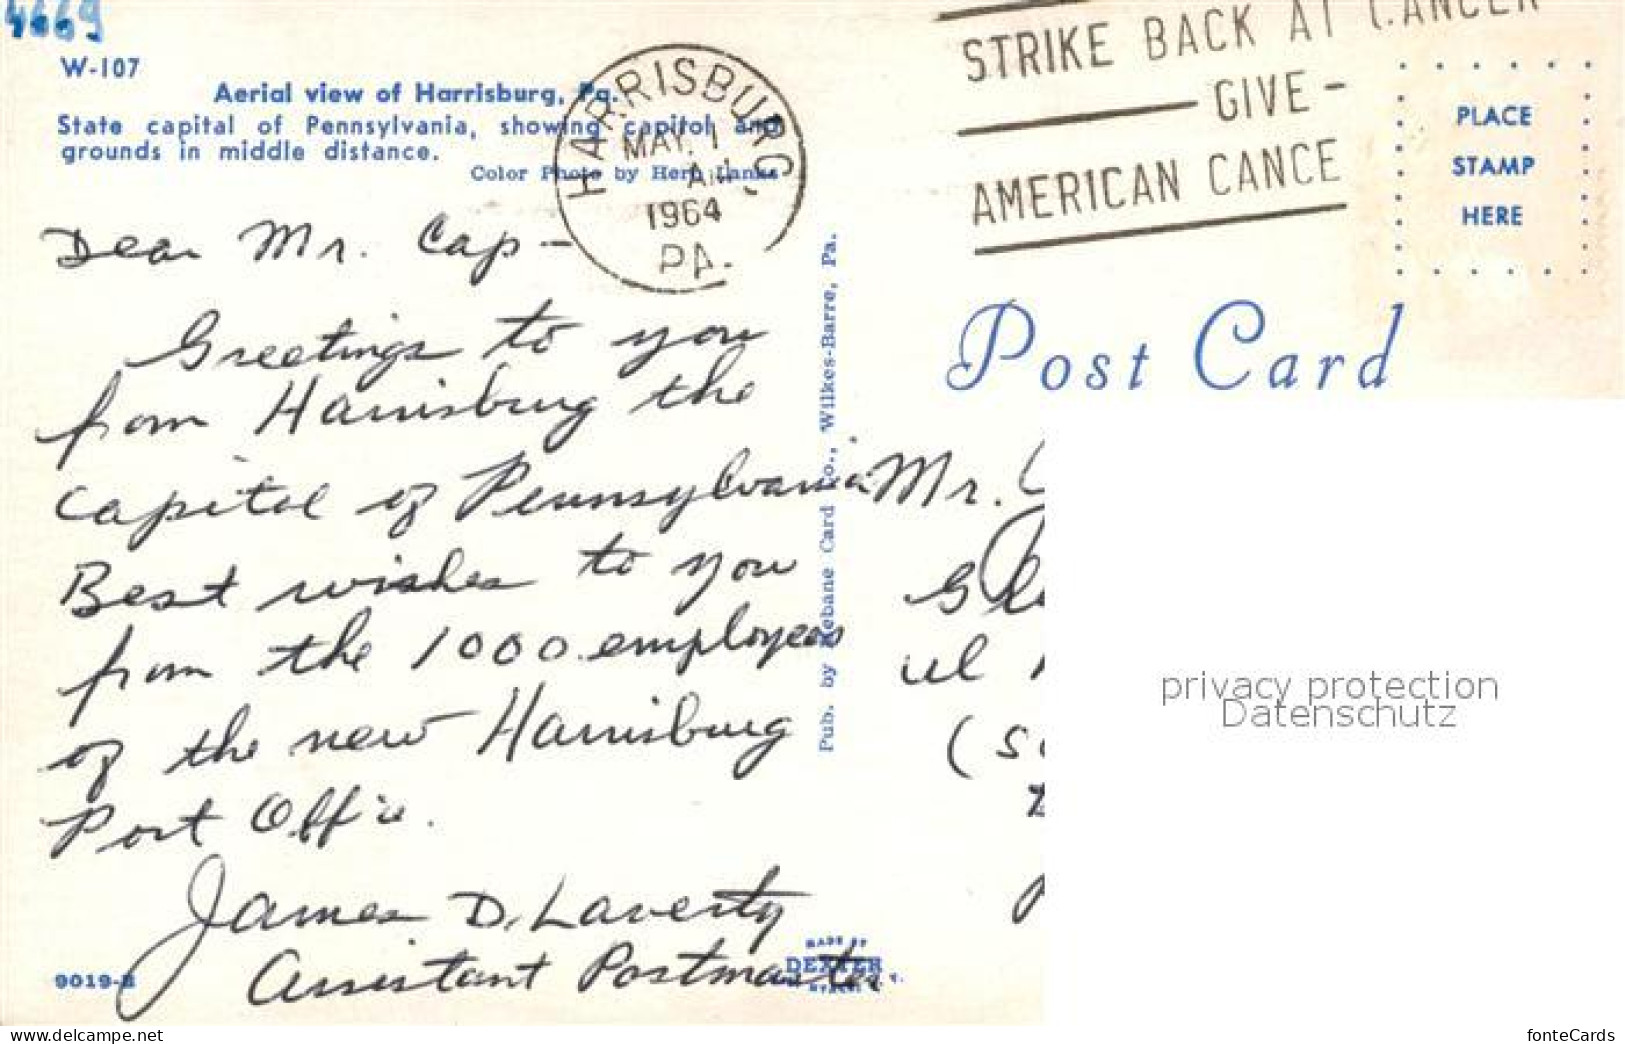 4669
W-107
Aerial view of Harrisburg, Pa.
State capital of Pennsylvania, showing capitol and
grounds in middle distance.
Color Photo by Herb Lanks
HARRISBURG,
MAY. 1
AM
1964
PA.
STRIKE BACK AT CANCER
GIVE -
AMERICAN CANCE
PLACE
STAMP
HERE
Post Card
Dear Mr. Cap -
Greetings to you
from Harrisburg the
Capitol of Pennsylvania
Best wishes to you
from the 1000 employees
of the new Harrisburg
Post Office.
James D. Laverty
Assistant Postmaster
Pub. by Mebane Card Co., Wilkes-Barre, Pa.
Mr.
ul
9019-B
MADE BY
DEXTER
privacy protection
Datenschutz
www.delcampe.net
fonteCards